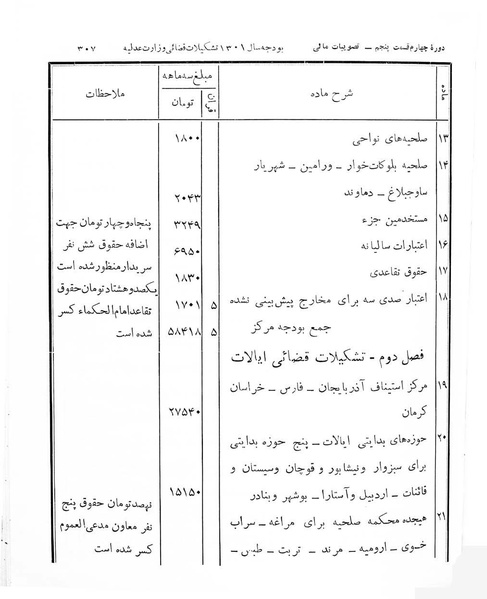 دورهٔ چهارم قسمت پنجم ـ تصویبات مالی بودجه سال ۱۳۰۱ تشکیلات قضائی وزارت عدلیه ۳۰۷
ماده شرح ماده مبلغ سه ماهه ملاحظات
قران تومان
۱۳ صلحیه‌های نواحی ۱۸۰۰
۱۴ صلحیه بلوکات خوار ـ ورامین ـ شهریار
ساوجبلاغ ـ دماوند ۲۰۴۳
۱۵ مستخدمین جزء ۳۲۴۹ پنجاه و چهار تومان جهت
۱۶ اعتبارات سالیانه ۶۹۵۰ اضافه حقوق شش نفر
۱۷ حقوق تقاعدی ۱۸۳۰ سریدار منظور شده است
۱۸ اعتبار صدی سه برای مخارج پیش‌بینی نشده ۵ ۱۷۰۱ یکصد و هشتاد تومان حقوق
تقاعد امام الحکماء کسر
جمع بودجه مرکز ۵ ۵۸۴۱۸ شده است
فصل دوم - تشکیلات قضائی ایالات
۱۹ مرکز استیناف آذربایجان ـ فارس ـ خراسان
کرمان ۲۷۵۴۰
۲۰ حوزه‌های بدایتی ایالات ـ پنج حوزه بدایتی
برای سبزوار و نیشابور و قوچان و سیستان و
قائنات ـ اردبیل و آستارا ـ بوشهر و بنادر ۱۵۱۵۰
۲۱ هیجده محکمه صلحیه برای مراغه ـ سراب نهصد تومان حقوق پنج
خوی ـ ارومیه ـ مرند ـ تربت ـ طبس ـ نفر معاون مدعی العموم
کسر شده است